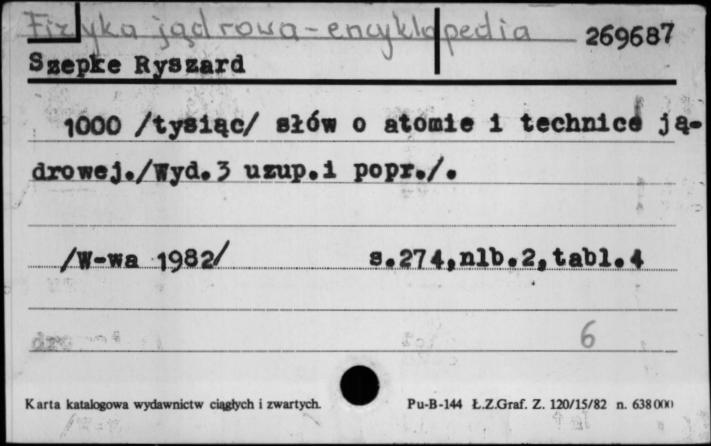 Fizyka jądrowa-encyklopedia 269687
Szepke Ryszard
1000 /tysiąc/ słów o atomie i technice ją-
drowej./Wyd.3 uzup.i popr./.
/W-wa 1982/ s.274,nlb.2,tabl.4
6
Karta katalogowa wydawnictw ciągłych i zwartych. Pu-B-144 Ł.Z.Graf. Z. 120/15/82 n. 638000